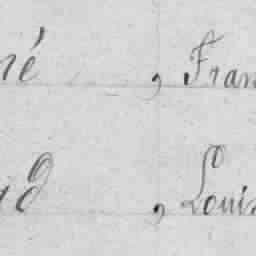 né , Fran
ud , Louis